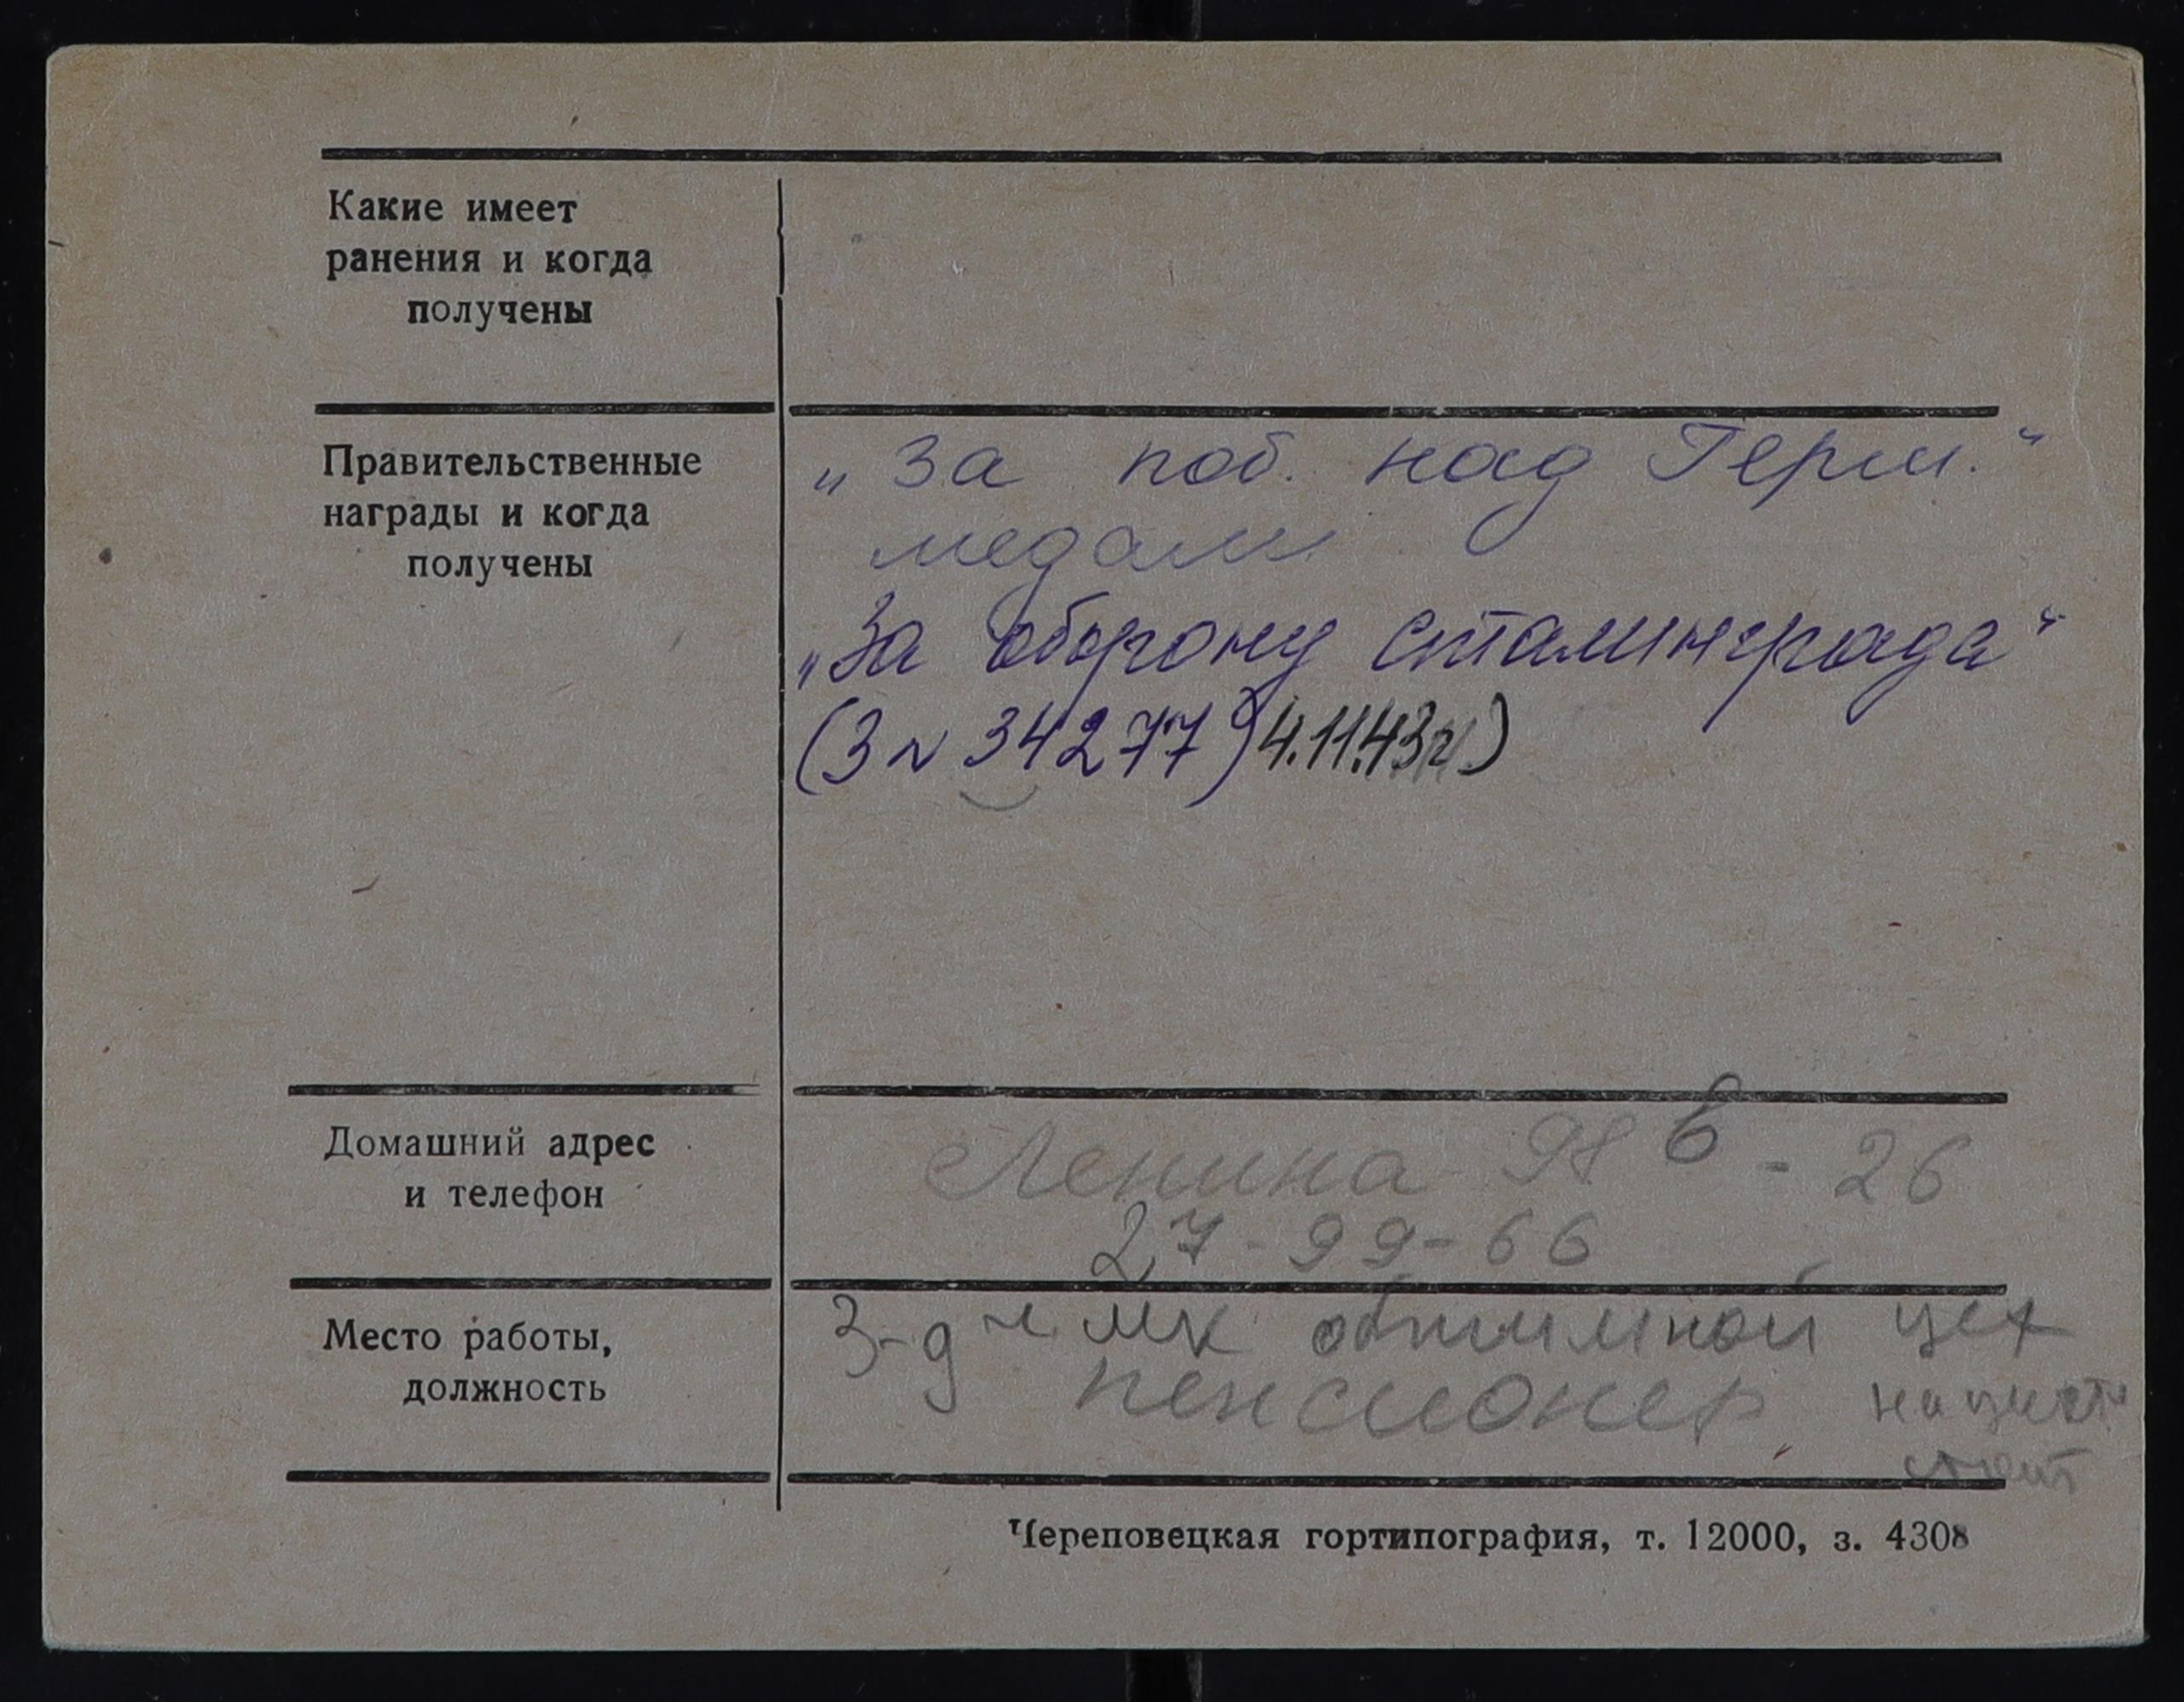 Какие имеет
ранения и когда
получены
Правительственные
награды и когда
получены
„За поб. над Герм.“
медали
„За оборону сталинграда“
(З № 34277) 4.11.43г)
Домашний адрес
и телефон
Ленина 98 б - 26
27-99-66
Место работы,
должность
З-д ЧМК обжимной цех
пенсионер
Череповецкая гортипография, т. 12000, з. 4308